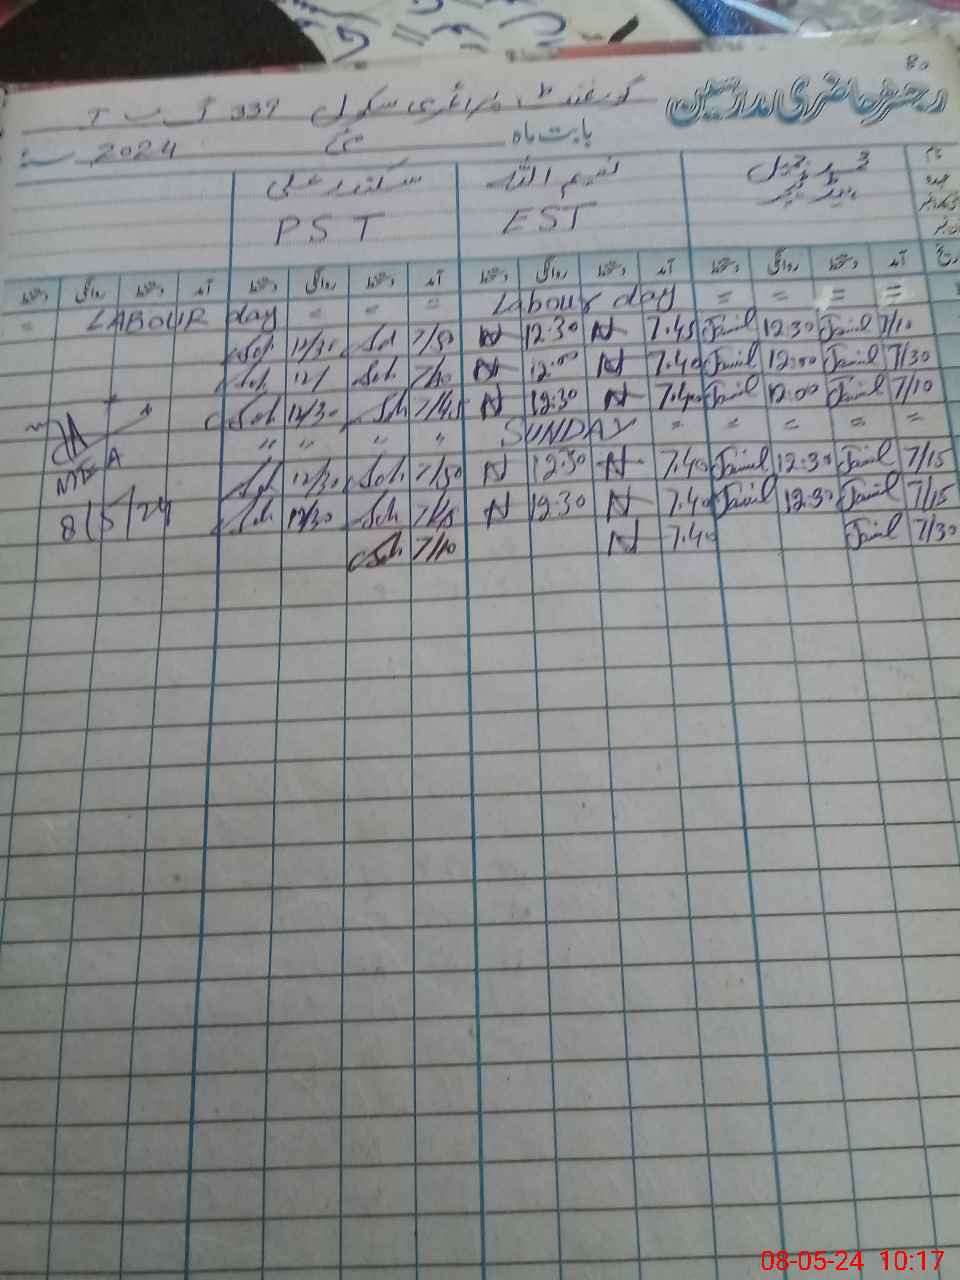 80
رجسٹر حاضری مدرسین گورنمنٹ پرائمری سکول 337 گ ب T
بابت ماہ مئی 2024
نام محمد جمیل نعیم اللہ سکندر علی
عہدہ ہیڈ ٹیچر EST PST
آمد دستخط روانگی دستخط آمد دستخط روانگی دستخط آمد دستخط روانگی دستخط آمد دستخط روانگی دستخط
= = = = Labour day = = LABOUR day =
7/10 Jamil 12:30 Jamil 7.45 N 12:30 N 7/50 12/30
7/30 Jamil 12:00 Jamil 7.40 N 12:00 N 12/
7/10 Jamil 12:00 Jamil 7.40 N 12:30 N 7/45 12/30
= = = = = SUNDAY " " " "
7/15 Jamil 12:30 Jamil 7.40 N 12:30 N 7/50 12/30
7/15 Jamil 12:30 Jamil 7.40 N 12:30 N 7/45 12/30
7/30 Jamil 7.40 N 7/10
MEA
8/5/24
08-05-24 10:17